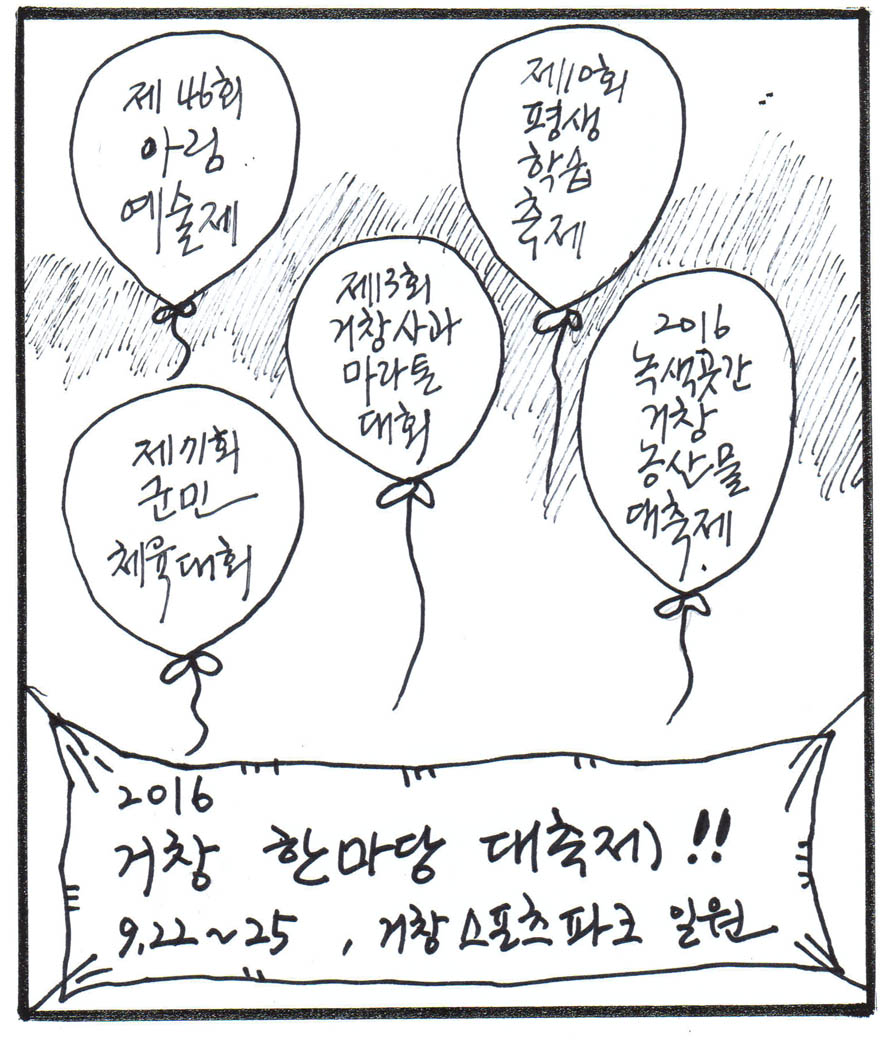 제 46회
아림
예술제
제10회
평생
학습
축제
제13회
거창사과
마라톤
대회
2016
녹색곳간
거창
농산물
대축제.
제71회
군민
체육대회
2016
거창 한마당 대축제) !!
9.22~25 , 거창스포츠파크 일원